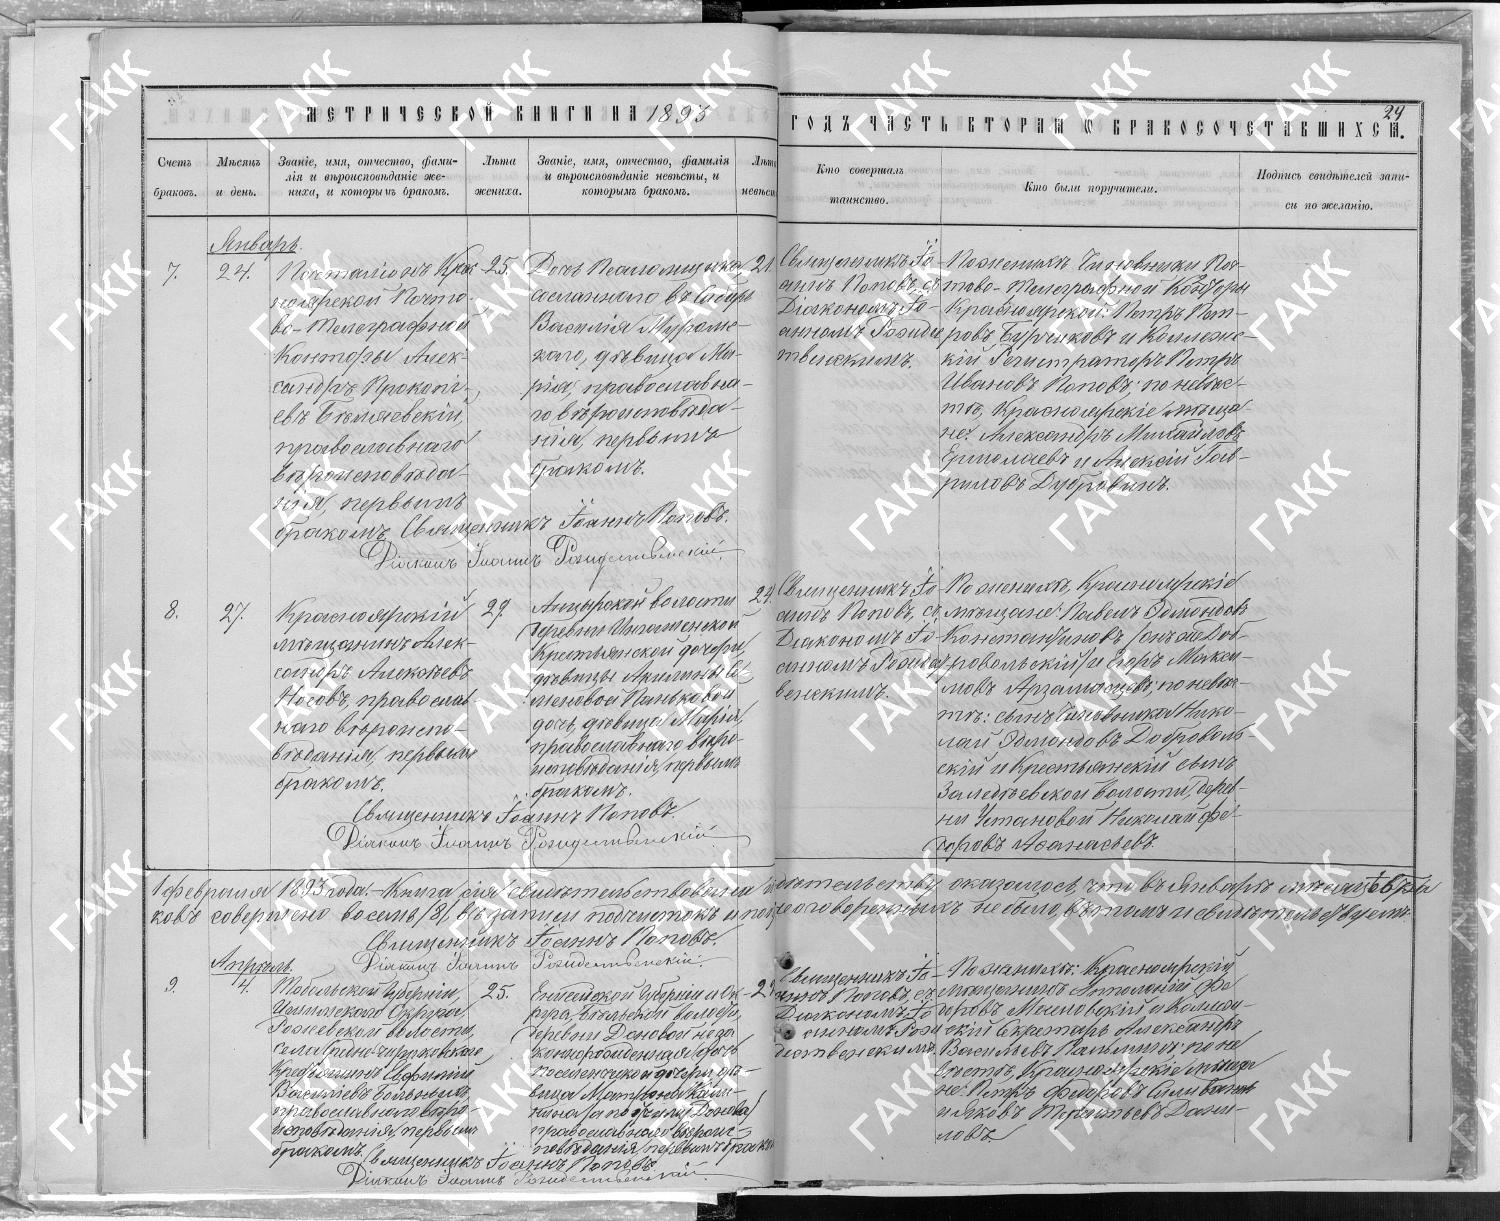 МЕТРИЧЕСКОЙ КНИГИ НА 1893
ГОДЪ ЧАСТЬ ВТОРАЯ О БРАКОСОЧЕТАВШИХСЯ.
24
Счетъ браковъ.
Мѣсяцъ и день.
Званіе, имя, отчество, фами-
лія и вѣроисповѣданіе же-
ниха, и которымъ бракомъ.
Лѣта
жениха.
Званіе, имя, отчество, фамилія
и вѣроисповѣданіе невѣсты, и
которымъ бракомъ.
Лѣта
невѣсты
Кто совершалъ
таинство.
Кто были поручители.
Подпись свидѣтелей запи-
си по желанію.
Январь.
7.
24.
Почталіонъ Крас-
ноярской Почто-
во-Телеграфной
Конторы Алек-
сандръ Прокопі-
евъ Бѣляевскій,
православнаго
вѣроисповѣда-
нія, первымъ
бракомъ.
25.
Дочь Псаломщика,
сосланнаго въ Сибирь
Василія Муромс-
каго, дѣвица Ма-
рія, православна-
го вѣроисповѣда-
нія, первымъ
бракомъ.
21.
Священникъ Іо-
аннъ Поповъ, съ
Діакономъ Іо-
анномъ Рождес-
твенскимъ.
По женихѣ: Чиновники Поч-
тово-Телеграфной Конторы
Красноярской: Петръ Пет-
ровъ Бурчиковъ и Коллежс-
кій Регистраторъ Петръ
Ивановъ Поповъ; по невѣс-
тѣ, Красноярскіе мѣща-
не: Александръ Михайловъ
Ермолаевъ и Алексій Гав-
риловъ Дубровинъ.
Священникъ Іоаннъ Поповъ.
Діаконъ Іоаннъ Рождественскій.
8.
27.
Красноярскій
мѣщанинъ Алек-
сандръ Алексѣевъ
Носовъ, православ-
наго вѣроиспо-
вѣданія, первымъ
бракомъ.
29.
волости
деревни
Крестьянской дочери,
дѣвицы
Паньковой
дочь, дѣвица Марія,
православнаго вѣро-
исповѣданія, первымъ
бракомъ.
24.
Священникъ Іо-
аннъ Поповъ, съ
Діакономъ Іо-
анномъ Рождест-
венскимъ.
По женихѣ, Красноярскіе
мѣщане: Павелъ Эдмондовъ
Константиновъ (онъ же Доб-
ровольскій) и Егоръ Макси-
мовъ Арзамасцевъ; по невѣс-
тѣ: сынъ Чиновника Нико-
лай Эдмондовъ Доброволь-
скій и Крестьянскій сынъ
Заледѣевской волости, дерев-
ни Установой Николай Фе-
доровъ Аѳанасьевъ.
Священникъ Іоаннъ Поповъ.
Діаконъ Іоаннъ Рождественскій.
1 февраля 1893 года. - Книга сія свидѣтельствована, по свидѣтельству оказалось, что въ Январѣ мѣсяцѣ бра-
ковъ совершено восемь /8/, въ записи подчистокъ и поправокъ неоговоренныхъ не было, въ томъ и свидѣтельствуемъ.
Священникъ Іоаннъ Поповъ.
Діаконъ Іоаннъ Рождественскій.
Апрѣль.
9.
4.
Тобольской Губерніи,
Ишимскаго Округа,
волости,
села
крестьянинъ
Васильевъ
православнаго вѣро-
исповѣданія, первымъ
бракомъ.
25.
Енисейской Губерніи и Ок-
руга, Бѣльской волости,
деревни Дановой неза-
коннорожденная дочь
поселенческой дочери дѣ-
вица Матрона
православнаго вѣроис-
повѣданія, первымъ бракомъ.
Священникъ Іо-
аннъ Поповъ, съ
Діакономъ Іо-
анномъ Рож-
дественскимъ.
По женихѣ: Красноярскій
мѣщанинъ Антоній Фе-
доровъ и
скій Секретарь Александръ
Васильевъ по не-
вѣстѣ, Красноярскіе мѣща-
не: Петръ Федоровъ
и Яковъ Дани-
ловъ.
Священникъ Іоаннъ Поповъ.
Діаконъ Іоаннъ Рождественскій.
ГАКК